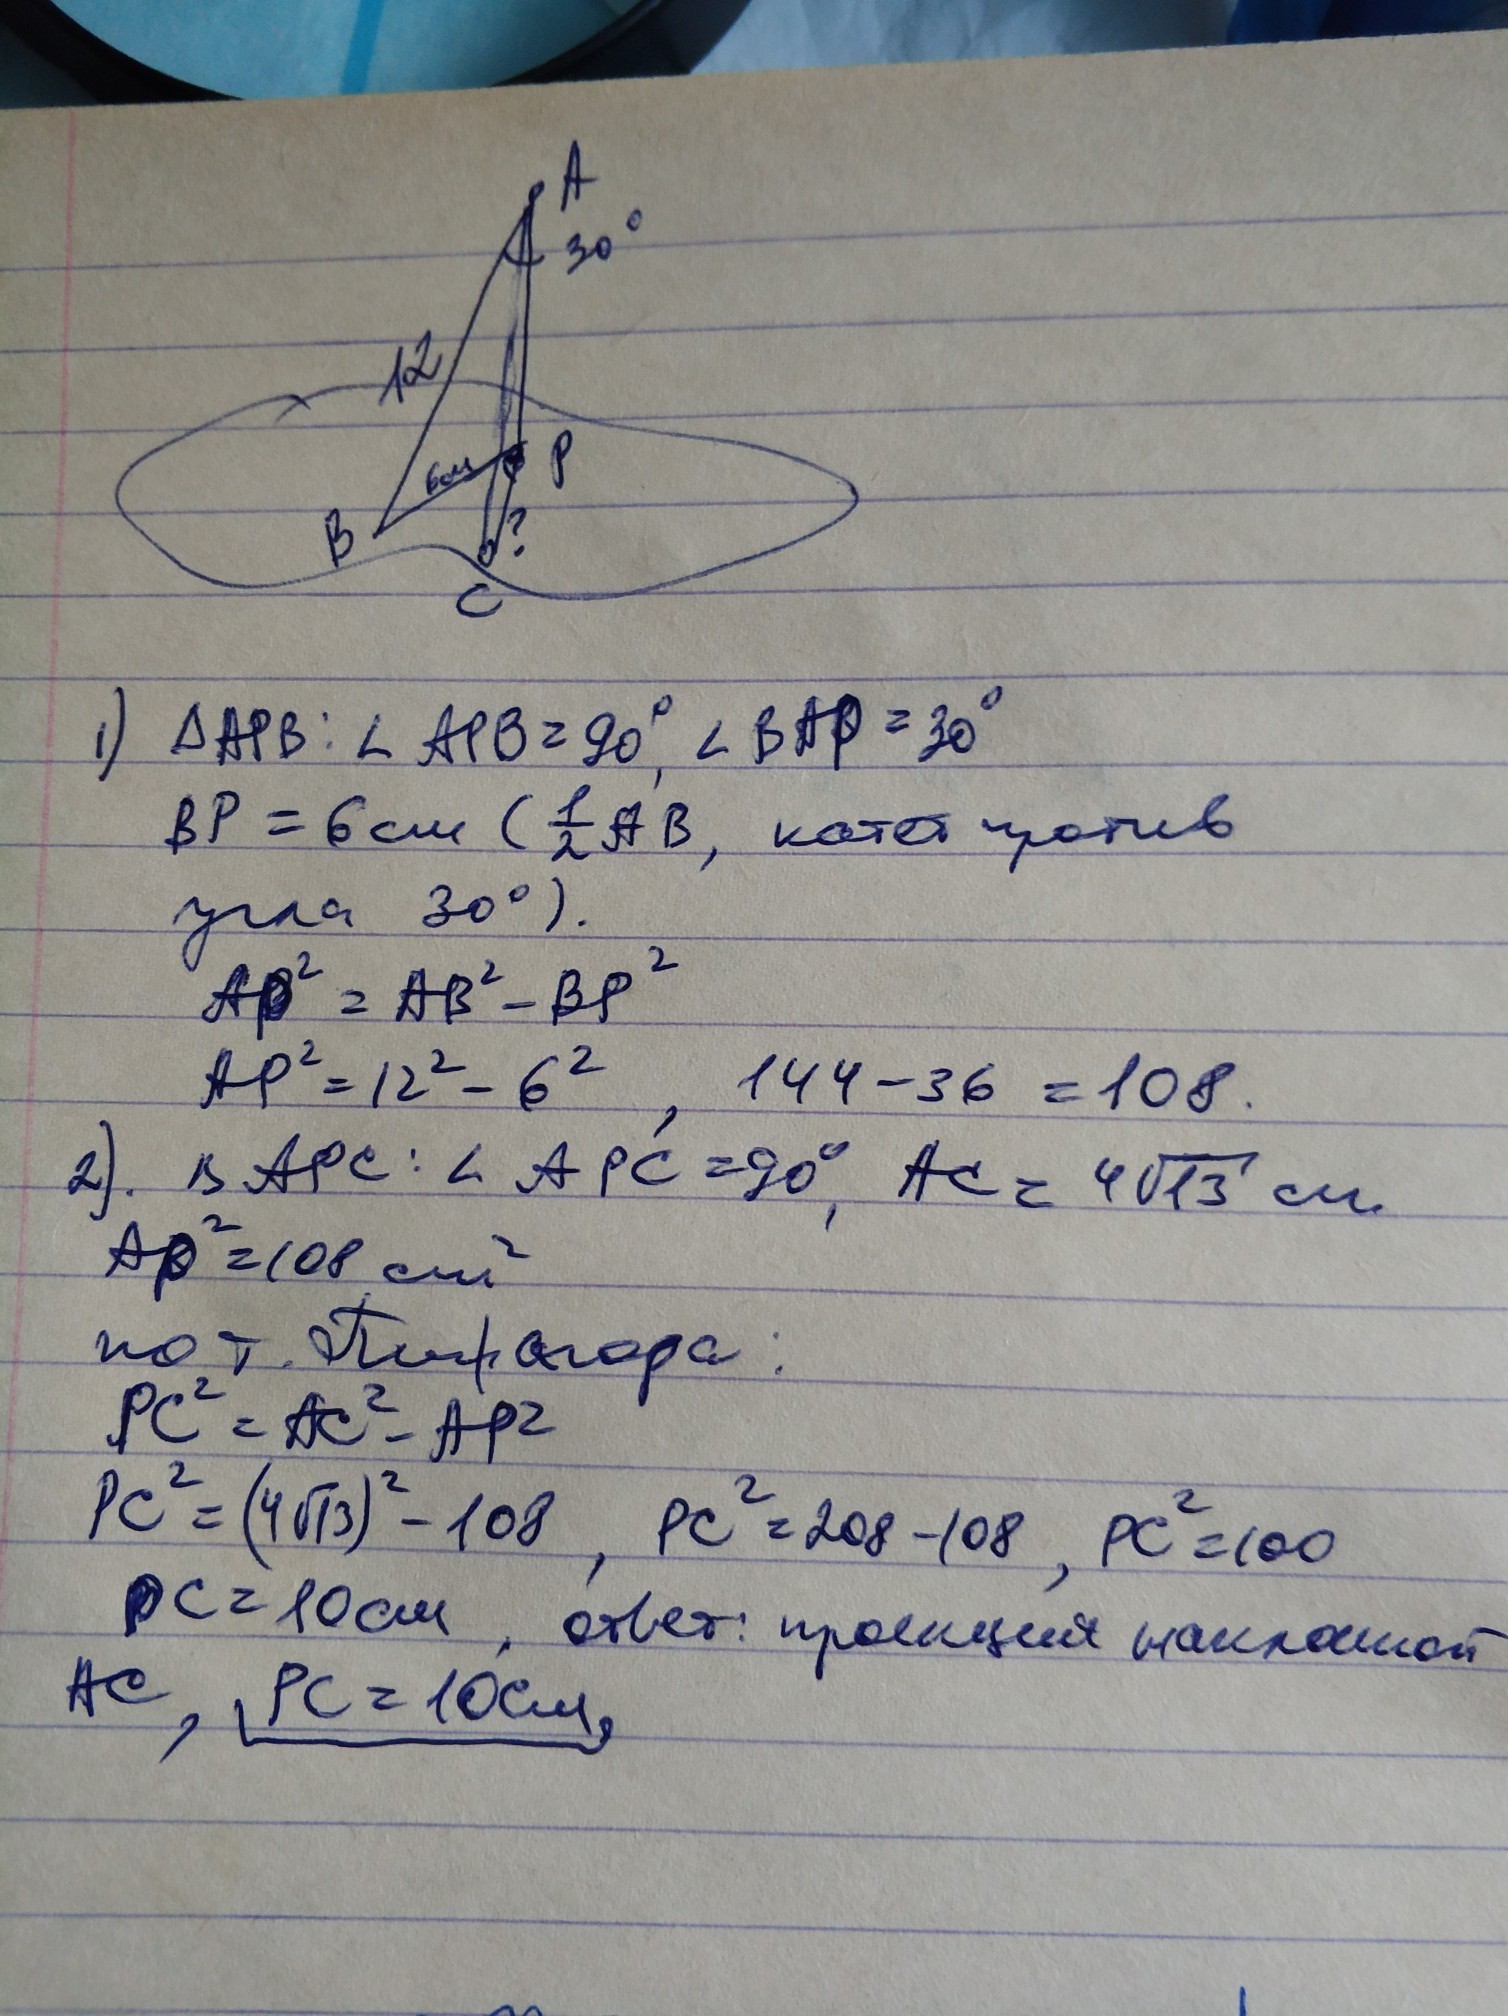 A
30°
12
6см
P
B
?
C
1) ΔAPB: ∠ APB = 90°, ∠ BAP = 30°
BP = 6 см (1/2 AB, катет против
угла 30°).
AP² = AB² - BP²
AP² = 12² - 6² , 144 - 36 = 108.
2). в APC: ∠ APC = 90°, AC = 4√13 см.
AP² = 108 см²
по т. Пифагора:
PC² = AC² - AP²
PC² = (4√13)² - 108 , PC² = 208 - 108 , PC² = 100
PC = 10 см , ответ: проекция наклонной
AC, PC = 10 см.